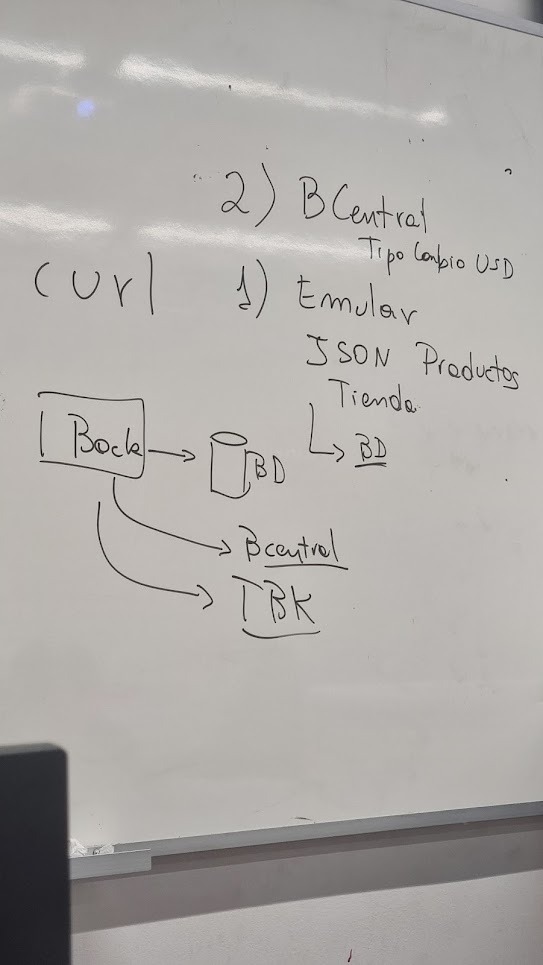 2) BCentral
Tipo Cambio USD
curl
1) Emular
JSON Productos
Tienda
BD
Back
BD
Bcentral
TBK